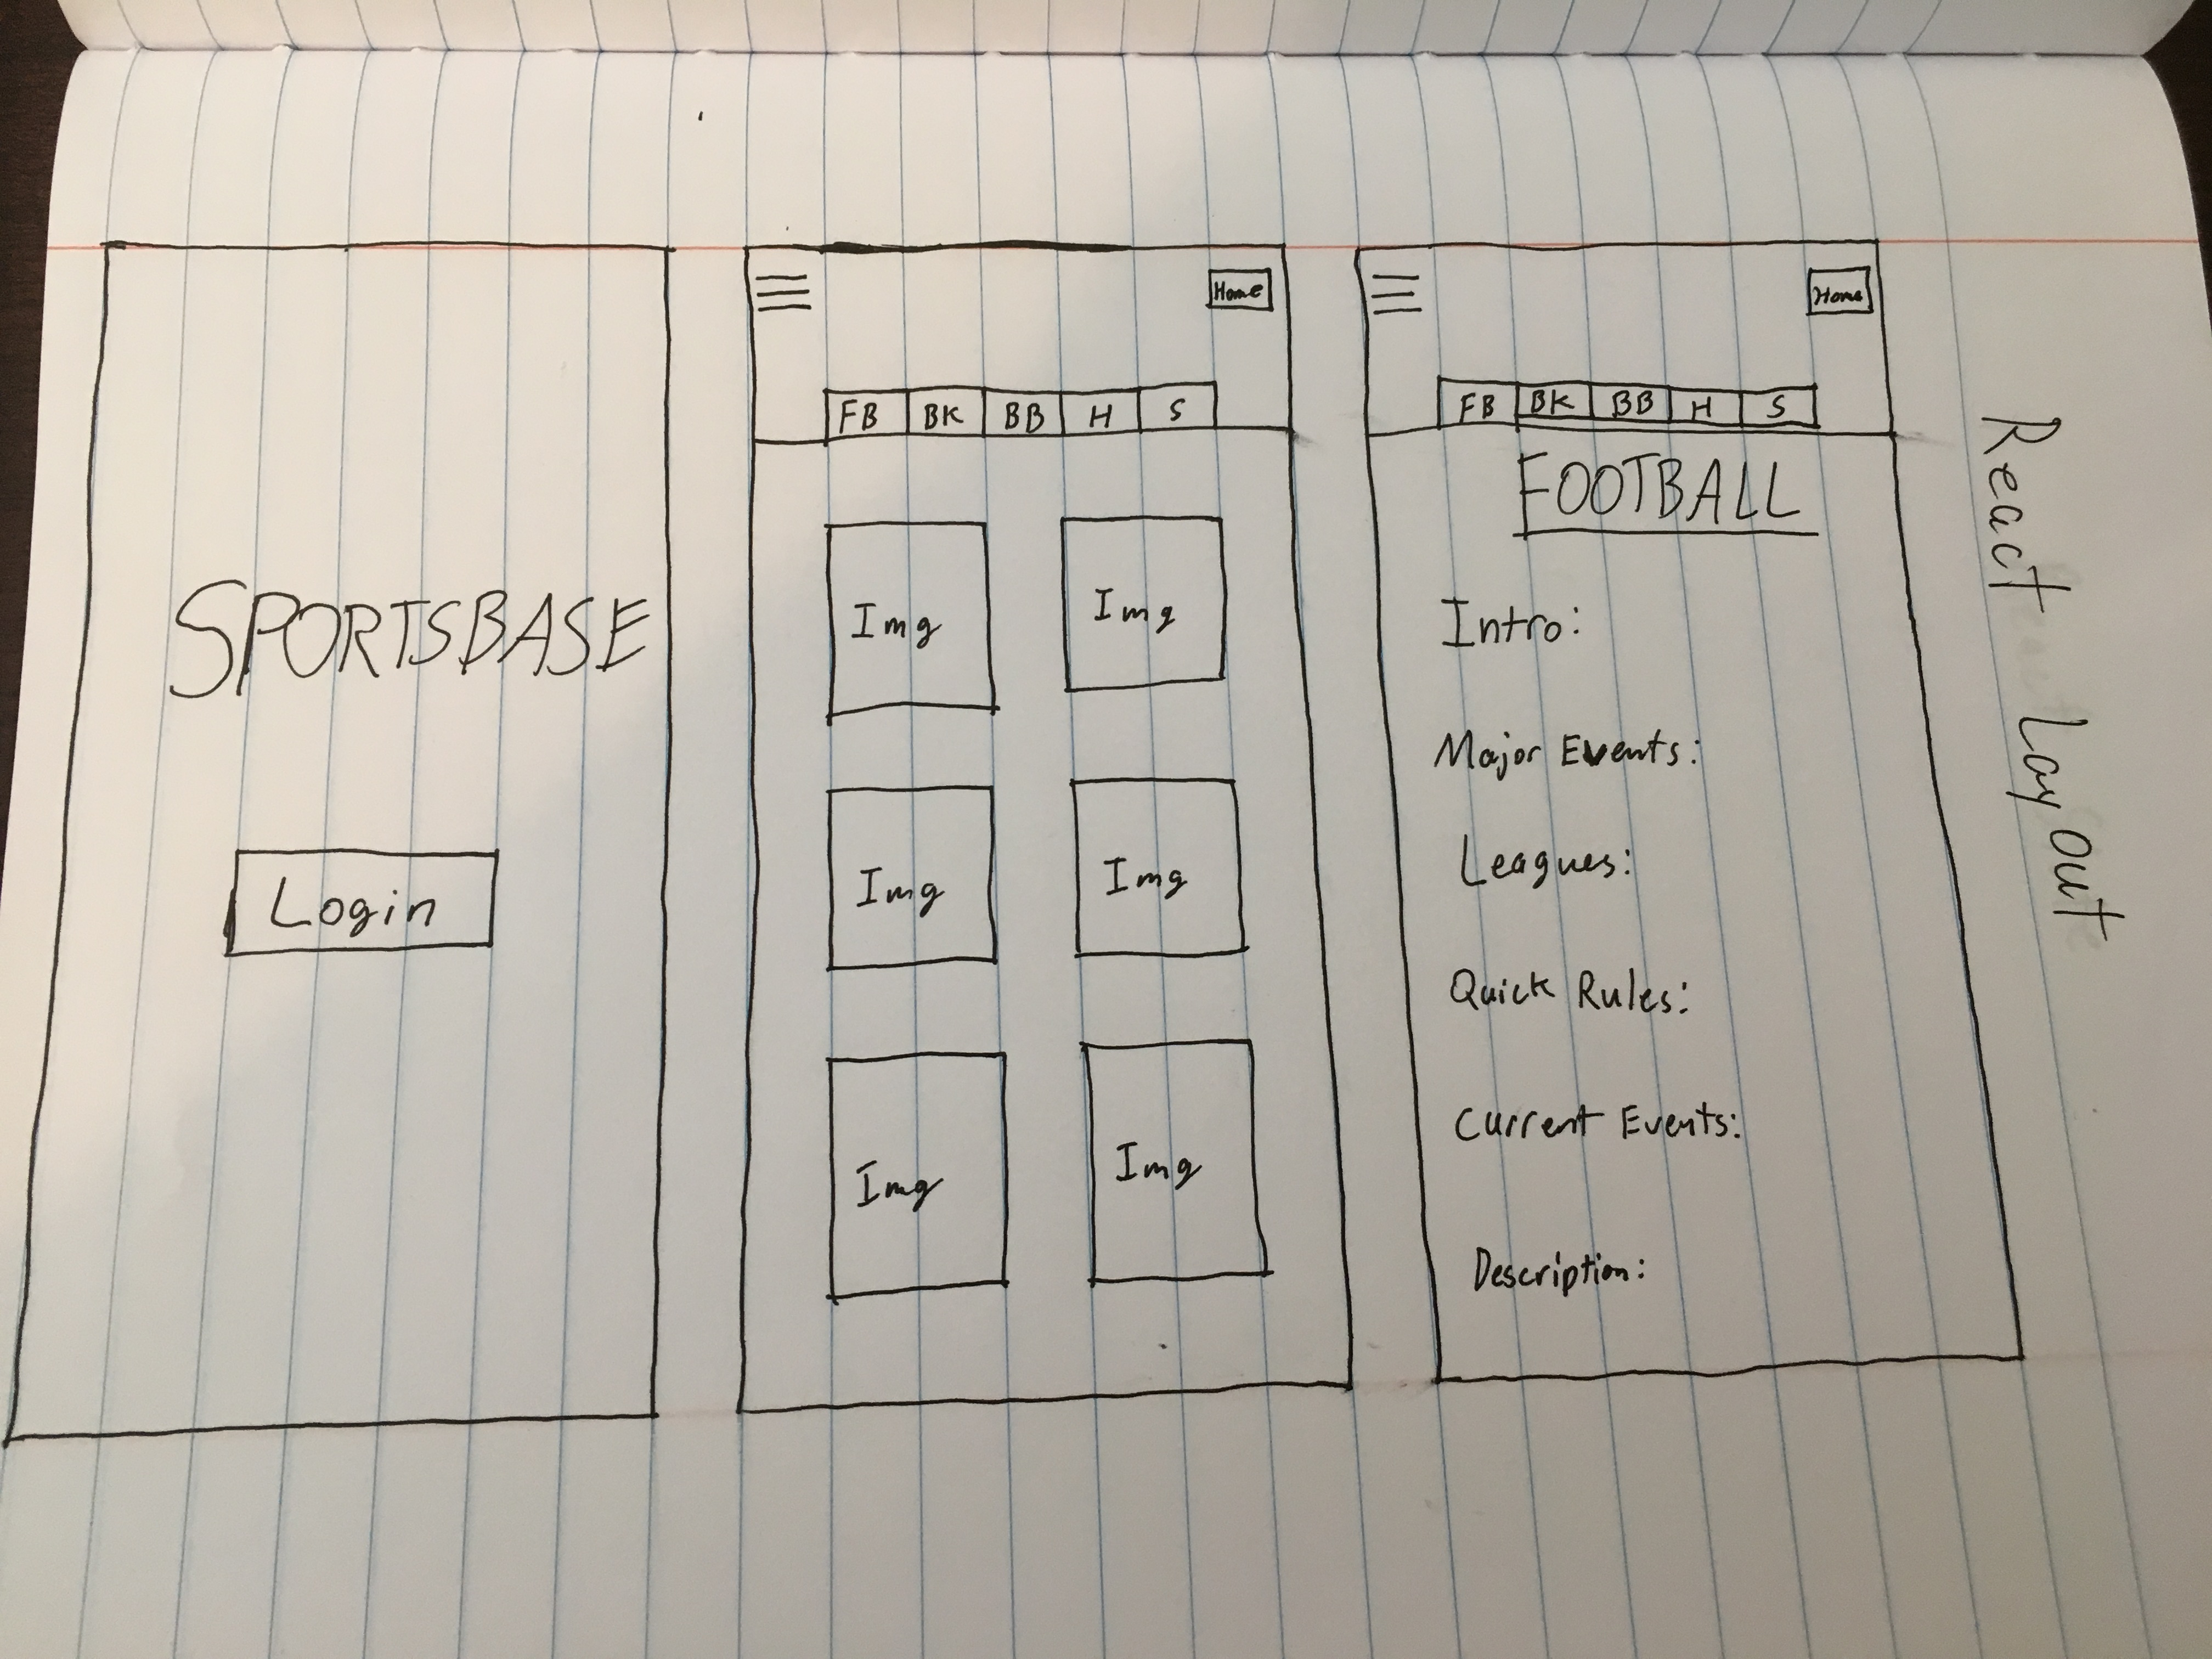 SPORTSBASE
Login
Home
FB BK BB H S
Img Img
Img Img
Img Img
Home
FB BK BB H S
FOOTBALL
Intro:
Major Events:
Leagues:
Quick Rules:
Current Events:
Description:
React
Layout